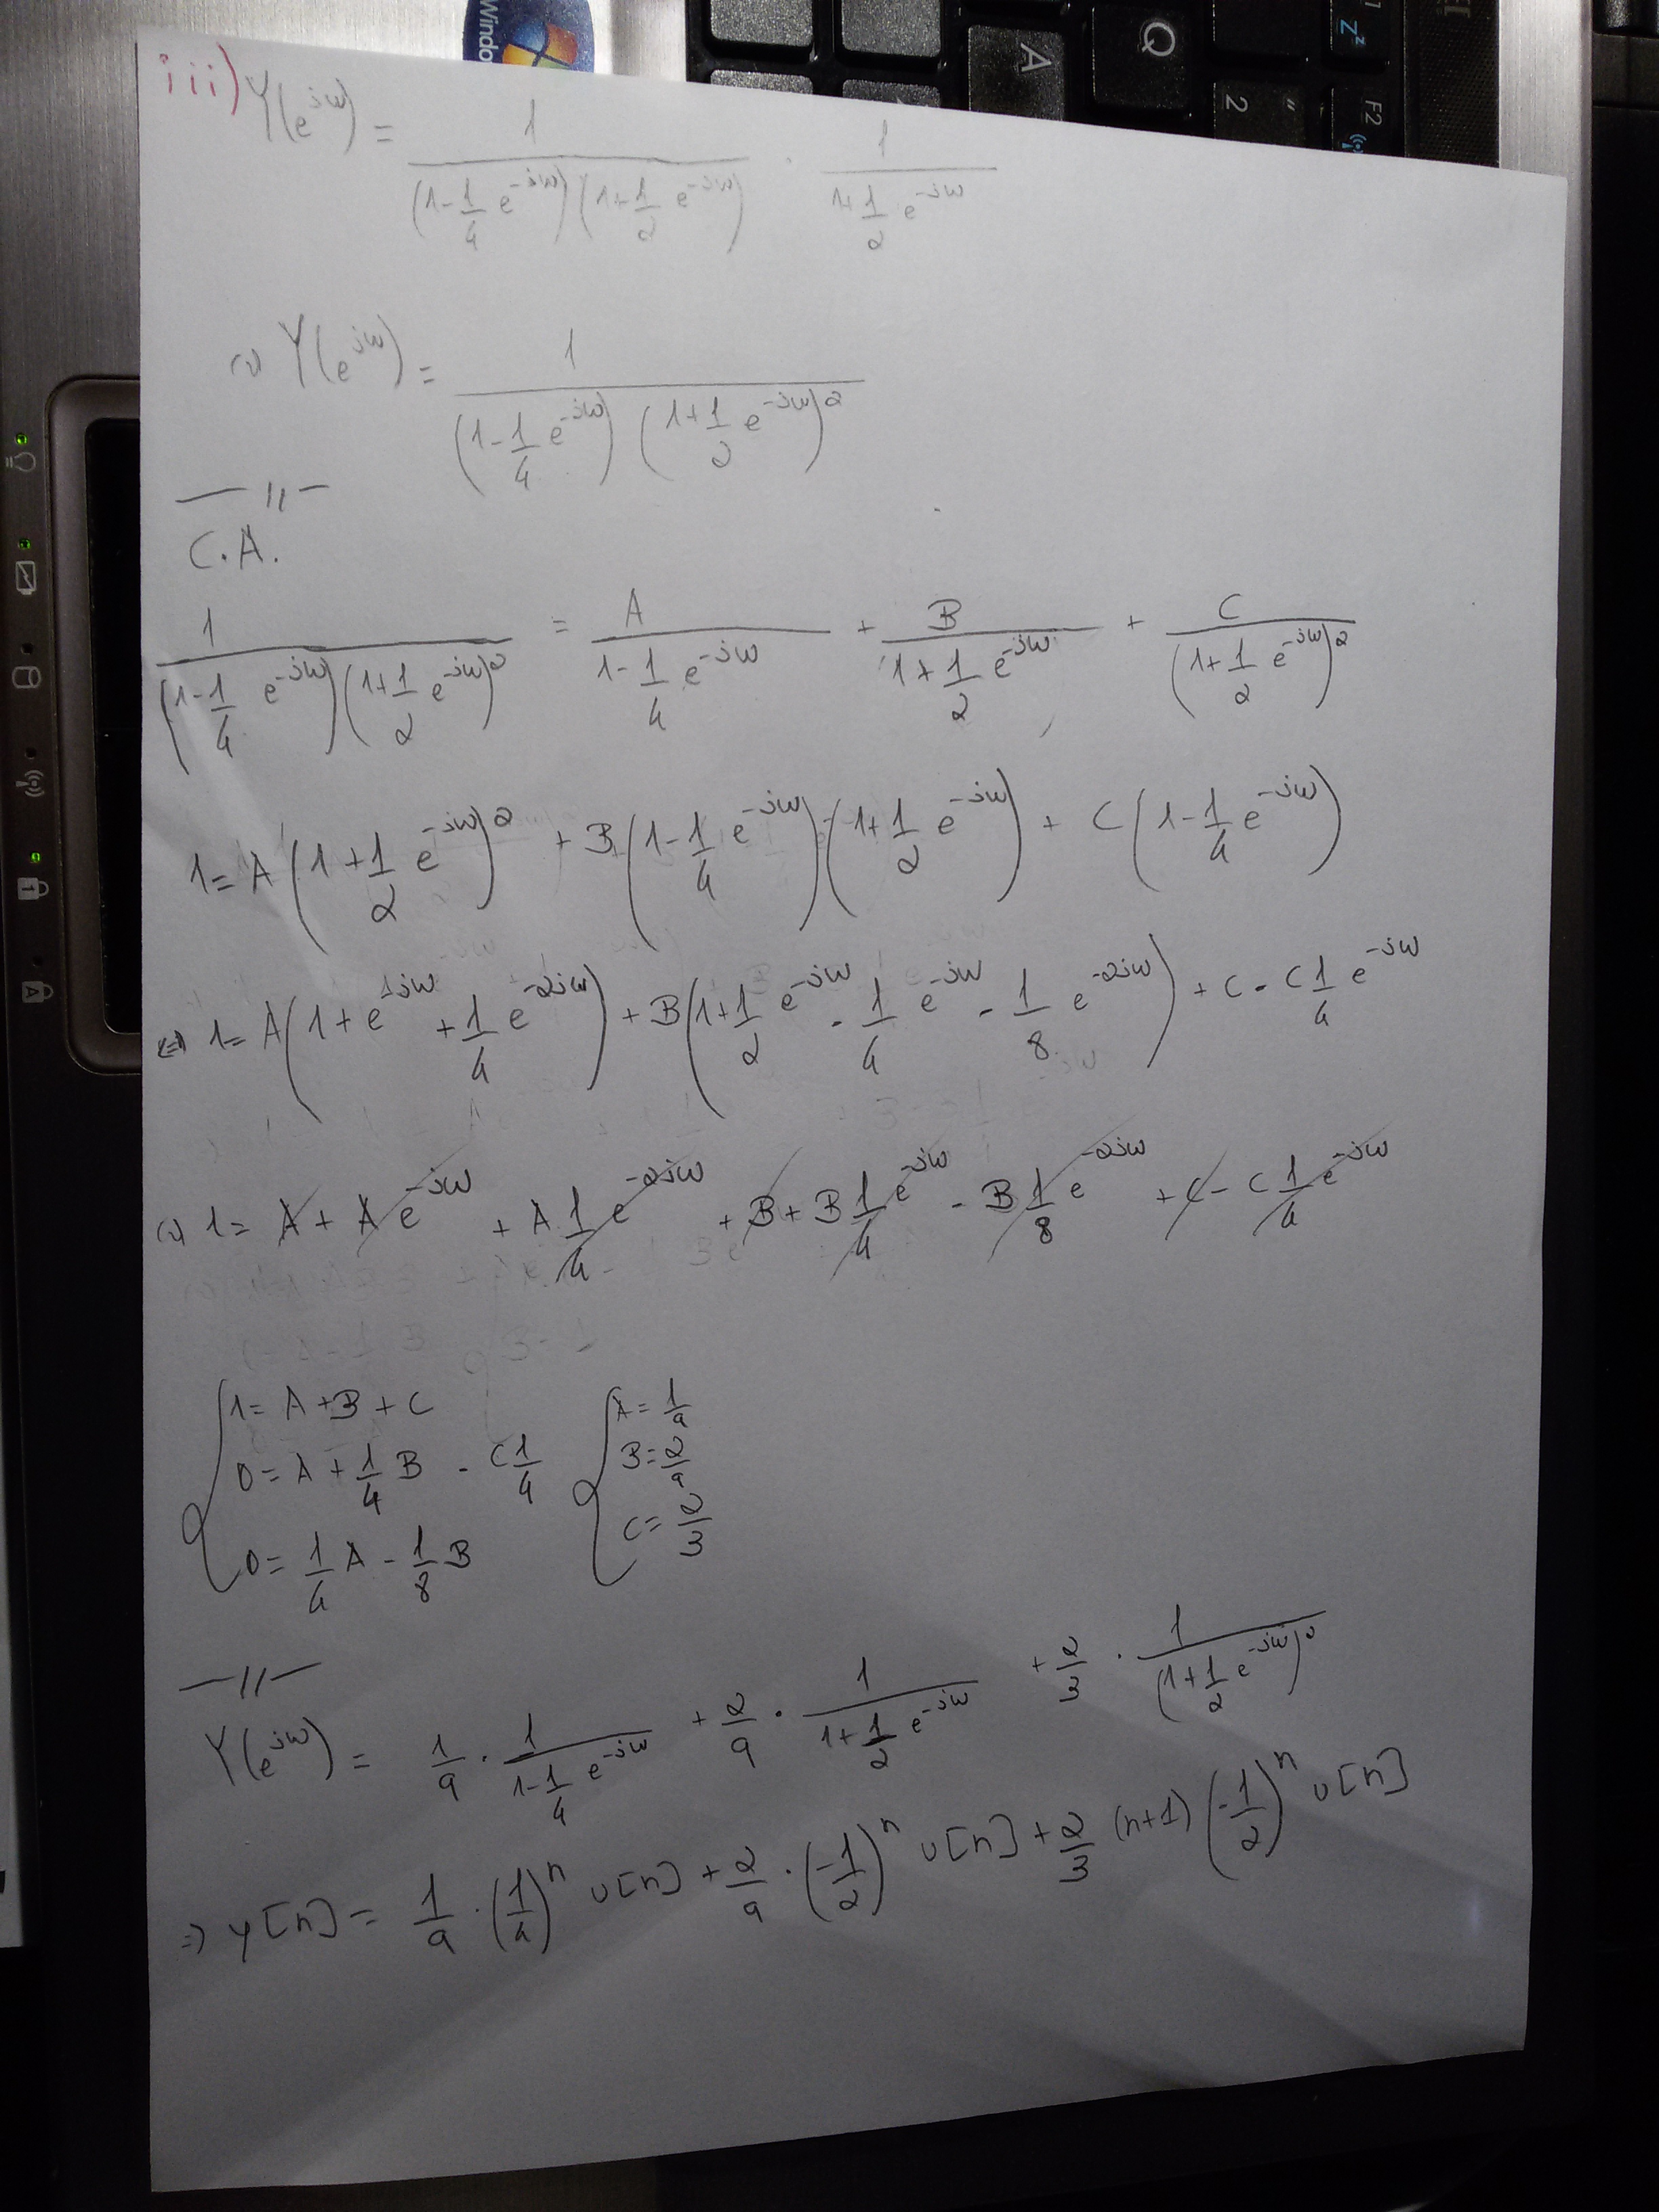 Windo
A
Q
2 "
F2
Z^z
iii) Y(e^{jω}) = 1/((1-1/4 e^{-jω})(1+1/2 e^{-jω})) · 1/(1+1/2 e^{-jω})
(=) Y(e^{jω}) = 1/((1-1/4 e^{-jω})(1+1/2 e^{-jω})^2)
—//—
C.A.
1/((1-1/4 e^{-jω})(1+1/2 e^{-jω})^2) = A/(1-1/4 e^{-jω}) + B/(1+1/2 e^{-jω}) + C/((1+1/2 e^{-jω})^2)
1= A(1+1/2 e^{-jω})^2 + B(1-1/4 e^{-jω})(1+1/2 e^{-jω}) + C(1-1/4 e^{-jω})
(=) 1= A(1+e^{-1jω}+1/4 e^{-2jω}) + B(1+1/2 e^{-jω} - 1/4 e^{-jω} - 1/8 e^{-2jω}) + C - C 1/4 e^{-jω}
(=) 1= A + A e^{-jω} + A 1/4 e^{-2jω} + B + B 1/4 e^{-jω} - B 1/8 e^{-2jω} + C - C 1/4 e^{-jω}
{ 1= A+B+C { A= 1/9
0= A+1/4 B - C 1/4 B= 2/9
0= 1/4 A - 1/8 B C= 2/3
—//—
Y(e^{jω}) = 1/9 · 1/(1-1/4 e^{-jω}) + 2/9 · 1/(1+1/2 e^{-jω}) + 2/3 · 1/((1+1/2 e^{-jω})^2)
=) y[n] = 1/9 · (1/4)^n u[n] + 2/9 · (-1/2)^n u[n] + 2/3 (n+1) (-1/2)^n u[n]